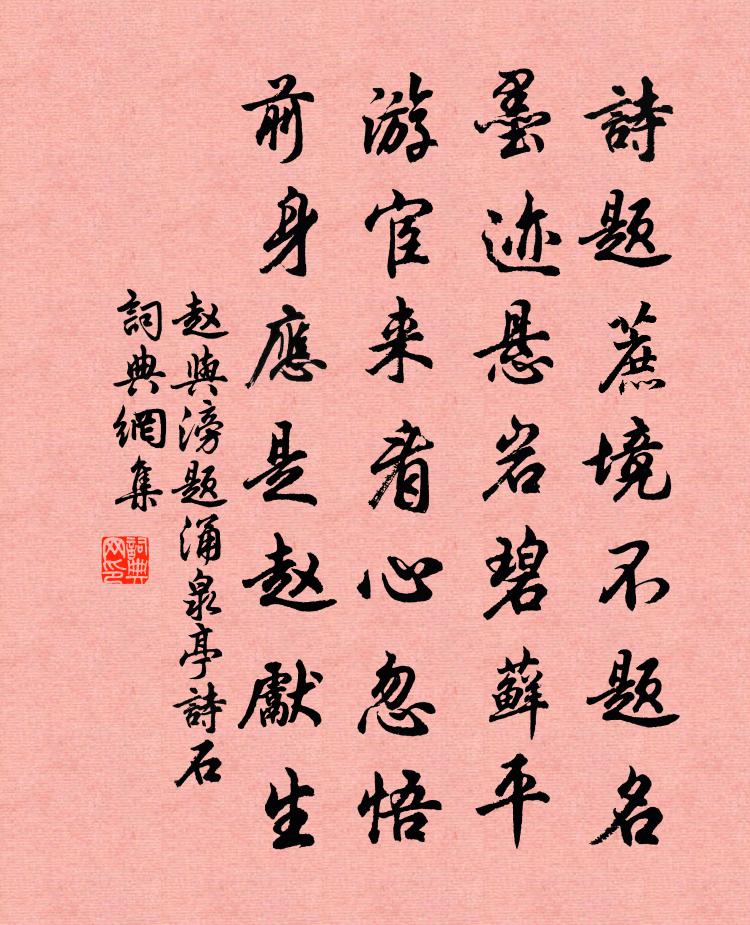 詩題蔗境不题名
墨迹悬岩碧蘚平
游宦来看心忽悟
前身應是赵獻生
赵與滂题涌泉亭詩石
詞典網集
詞典网印